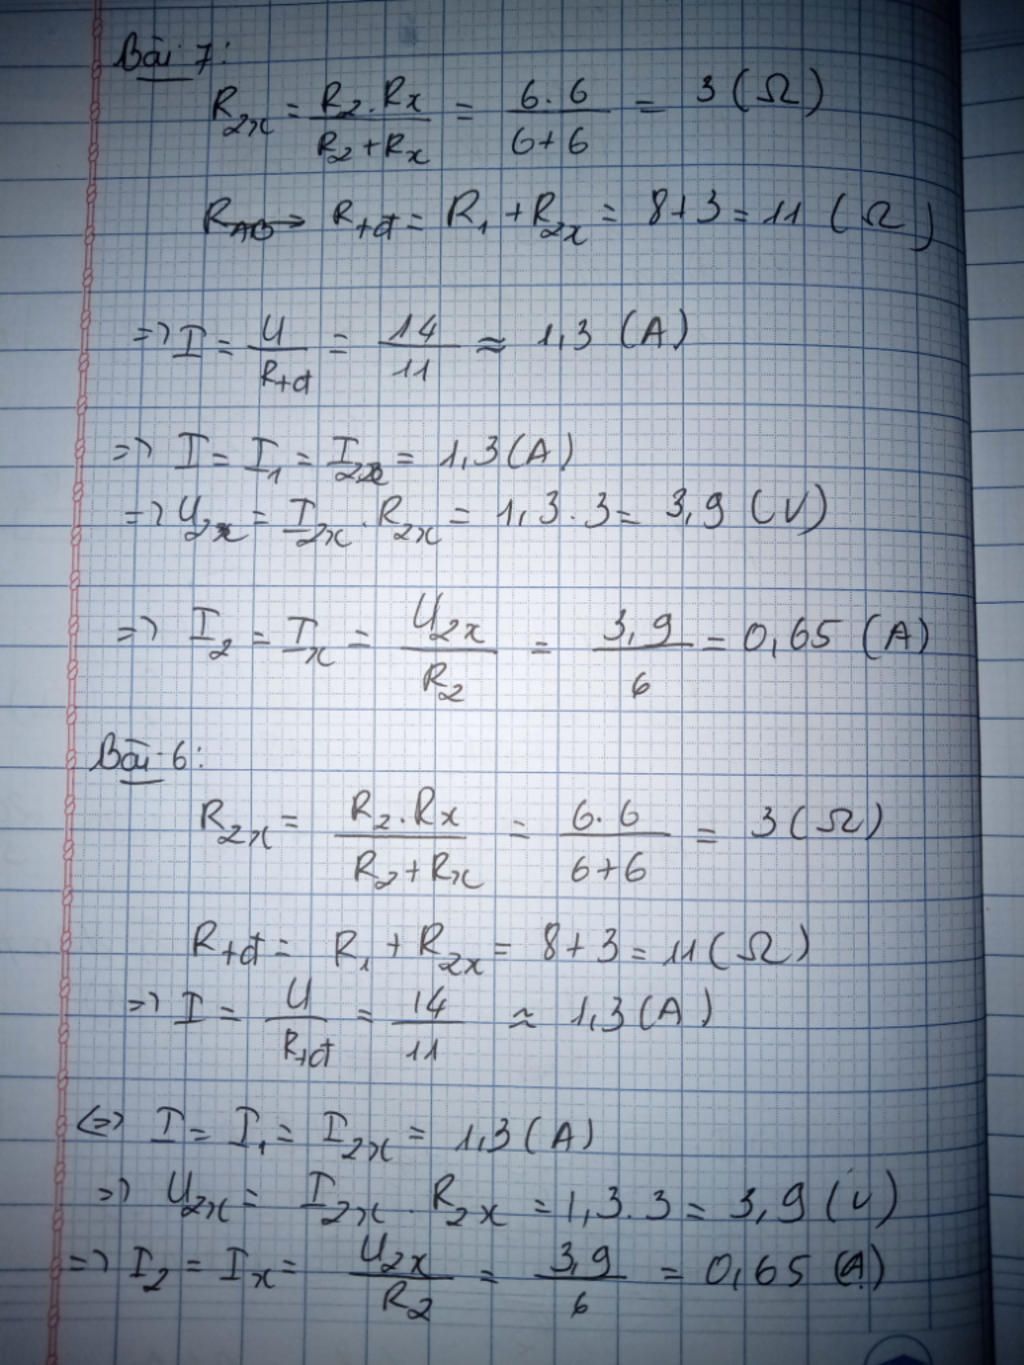 Bài 7:
R2x = R2.Rx / R2+Rx = 6.6 / 6+6 = 3 (Ω)
Rtđ = R1 + R2x = 8+3 = 11 (Ω)
=> I = U / Rtđ = 14 / 11 ≈ 1,3 (A)
=> I = I1 = I2x = 1,3 (A)
=> U2x = I2x . R2x = 1,3.3 = 3,9 (V)
=> I2 = Ix = U2x / R2 = 3,9 / 6 = 0,65 (A)
Bài 6:
R2x = R2.Rx / R2+Rx = 6.6 / 6+6 = 3 (Ω)
Rtđ = R1 + R2x = 8+3 = 11 (Ω)
=> I = U / Rtđ = 14 / 11 ≈ 1,3 (A)
<=> I = I1 = I2x = 1,3 (A)
=> U2x = I2x . R2x = 1,3.3 = 3,9 (V)
=> I2 = Ix = U2x / R2 = 3,9 / 6 = 0,65 (A)